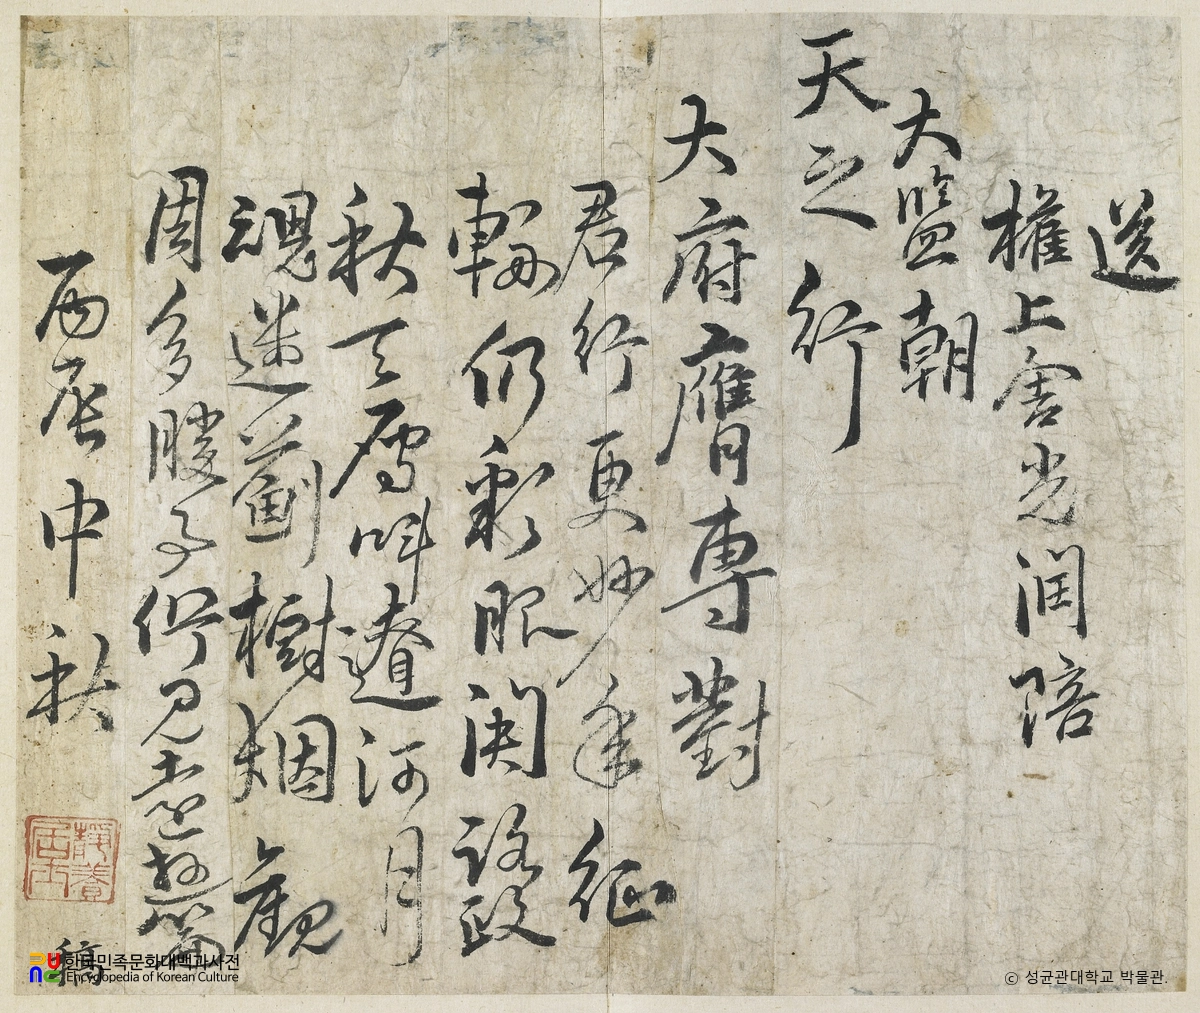 送
權上舍光潤陪
大監朝
天之行
大府膺專對
君行更妙年征
輪仍彩服関路政
秋天鴈叫遼河月
魂迷薊樹烟觀
周多勝事佇見遠遊篇
丙辰中秋
靜養
居士
稿
한국민족문화대백과사전
Encyclopedia of Korean Culture
ⓒ 성균관대학교 박물관.